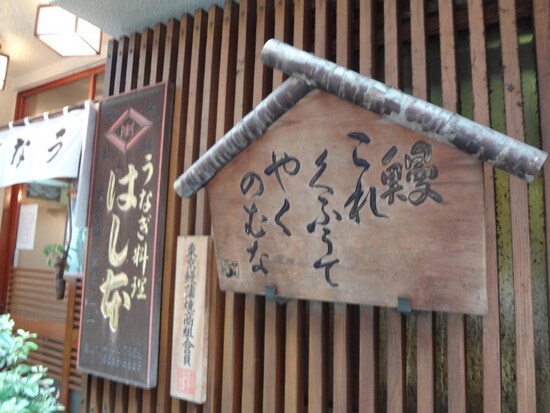 鰻
これ
くふうて
やく
のむな
うなぎ料理
はし本
東京鰻蒲焼商組合員
うな